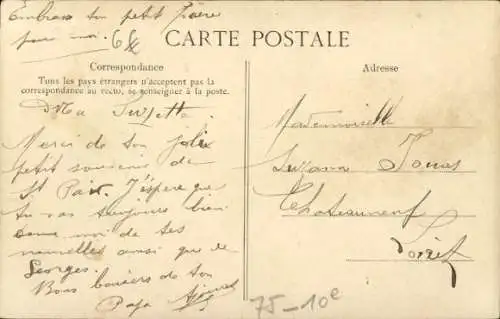 Embrasse ton petit frère
pour moi.
CARTE POSTALE
Correspondance
Tous les pays étrangers n'acceptent pas la
correspondance au recto, se renseigner à la poste.
Ma Suzette
Merci de ton jolie
petit souvenir de
St Pair. J'espère que
tu vas toujours bien
donne moi de tes
nouvelles ainsi que de
Georges.
Bons baisers de ton
Papa
Adresse
Mademoiselle
Suzanne
Chateauneuf
Loiret
75-10e